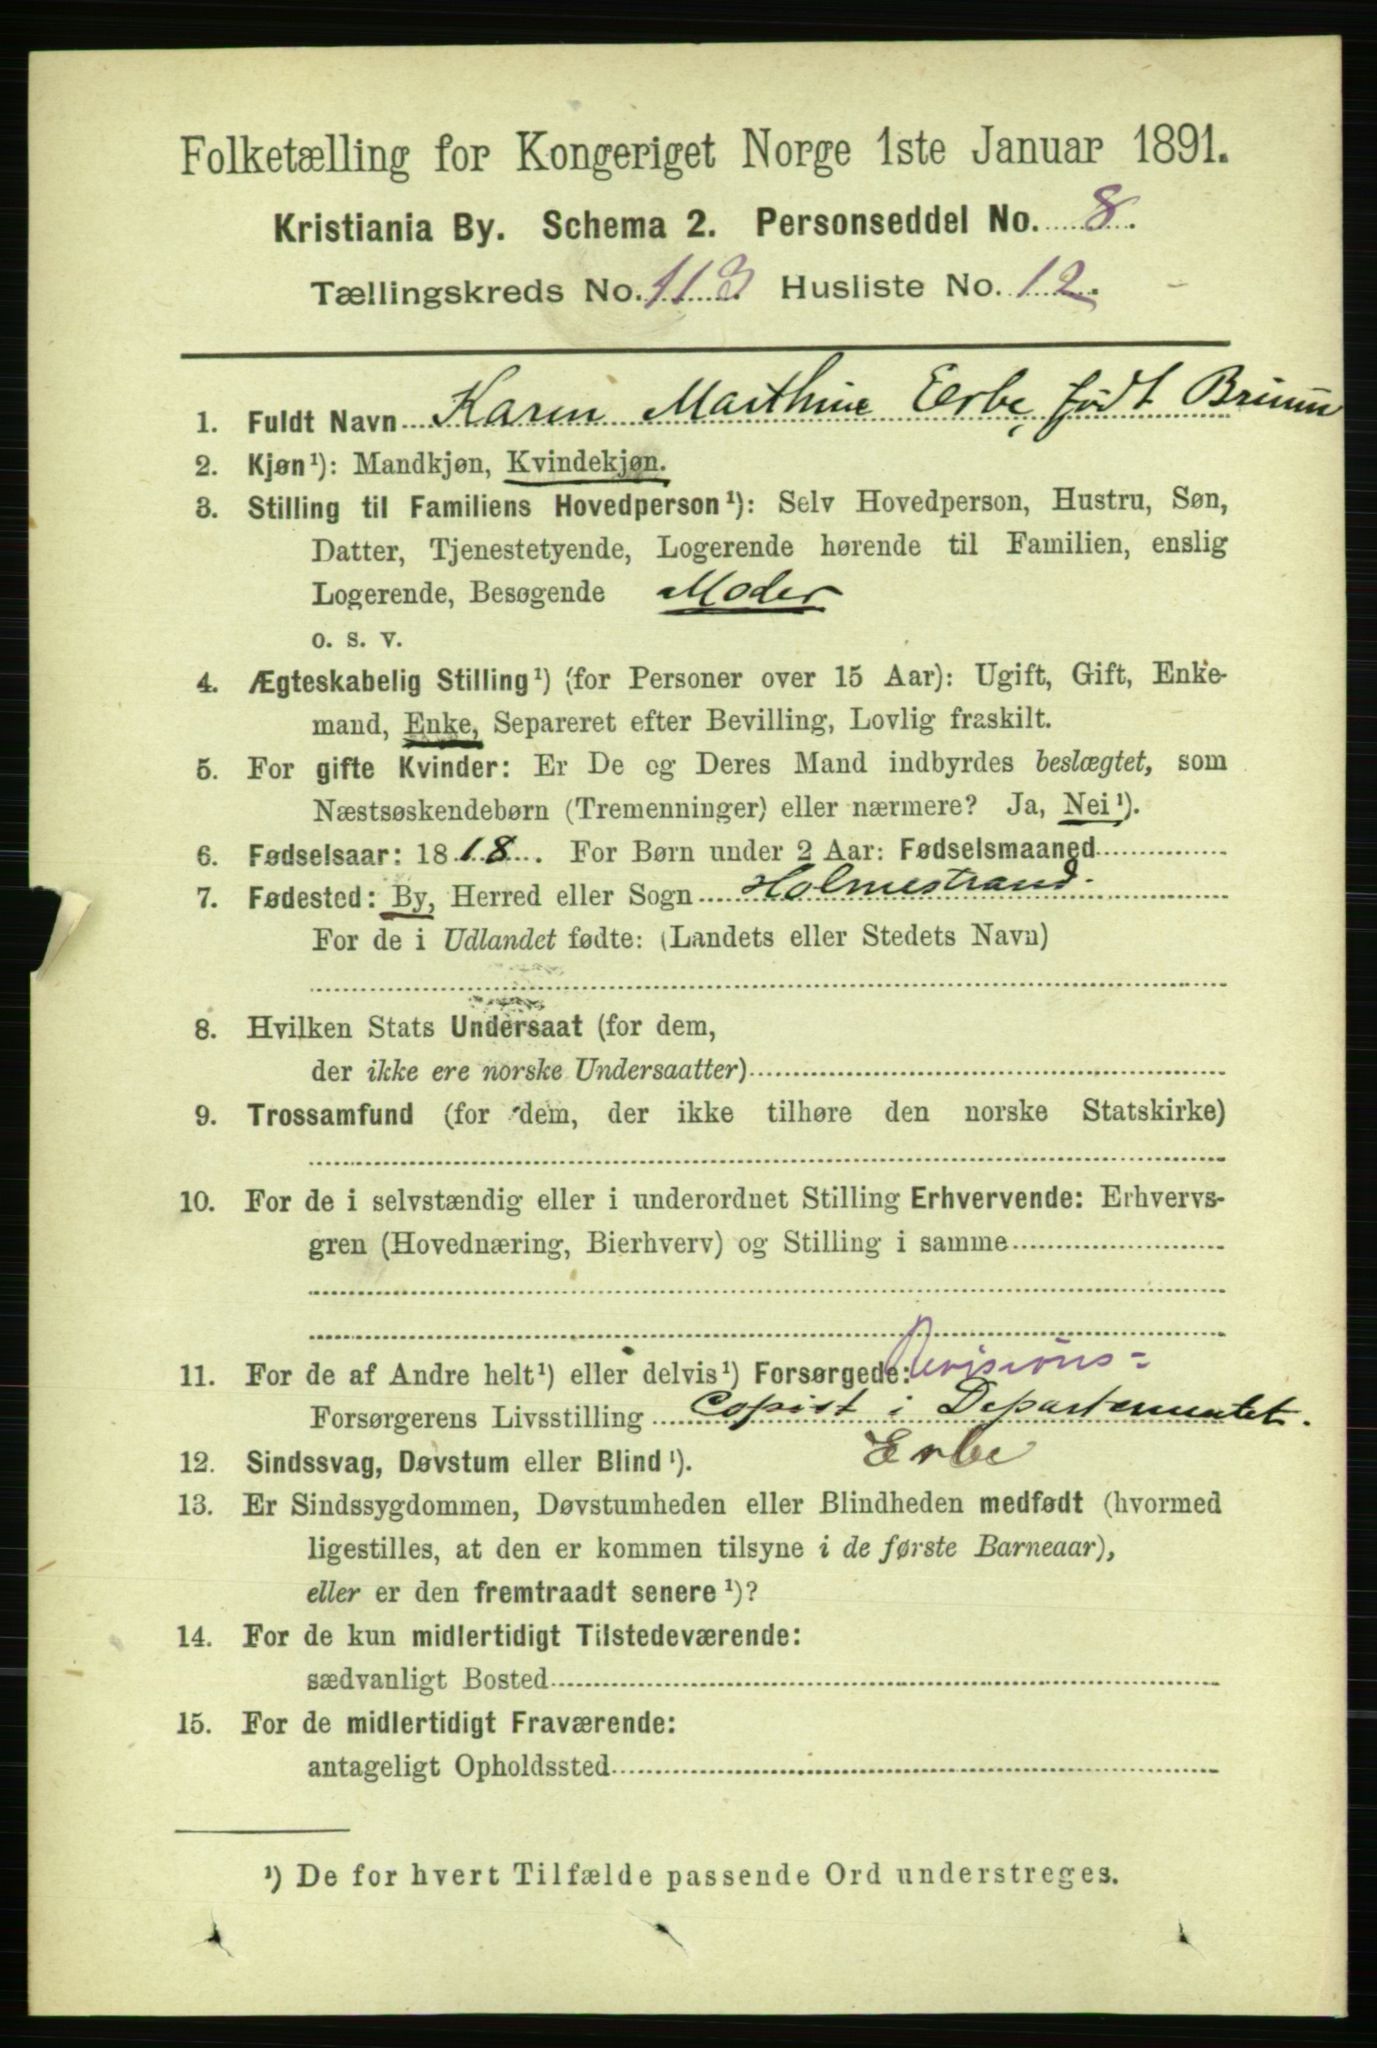 Folketælling for Kongeriget Norge 1ste Januar 1891.
Kristiania By. Schema 2. Personseddel No. 8.
Tællingskreds No. 113 Husliste No. 12.
1. Fuldt Navn Karen Marthine Erbe, født
2. Kjøn¹): Mandkjøn, Kvindekjøn.
3. Stilling til Familiens Hovedperson¹): Selv Hovedperson, Hustru, Søn,
Datter, Tjenestetyende, Logerende hørende til Familien, enslig
Logerende, Besøgende Moder
o. s. v.
4. Ægteskabelig Stilling¹) (for Personer over 15 Aar): Ugift, Gift, Enke-
mand, Enke, Separeret efter Bevilling, Lovlig fraskilt.
5. For gifte Kvinder: Er De og Deres Mand indbyrdes beslægtet, som
Næstsøskendebørn (Tremenninger) eller nærmere? Ja, Nei¹).
6. Fødselsaar: 1818. For Børn under 2 Aar: Fødselsmaaned
7. Fødested: By, Herred eller Sogn Holmestrand.
For de i Udlandet fødte: (Landets eller Stedets Navn)
8. Hvilken Stats Undersaat (for dem,
der ikke ere norske Undersaatter)
9. Trossamfund (for dem, der ikke tilhøre den norske Statskirke)
10. For de i selvstændig eller i underordnet Stilling Erhvervende: Erhvervs-
gren (Hovednæring, Bierhverv) og Stilling i samme
11. For de af Andre helt¹) eller delvis¹) Forsørgede: Revisions-
Forsørgerens Livsstilling Copist i Departementet.
Erbe
12. Sindssvag, Døvstum eller Blind¹).
13. Er Sindssygdommen, Døvstumheden eller Blindheden medfødt (hvormed
ligestilles, at den er kommen tilsyne i de første Barneaar),
eller er den fremtraadt senere¹)?
14. For de kun midlertidigt Tilstedeværende:
sædvanligt Bosted
15. For de midlertidigt Fraværende:
antageligt Opholdssted
¹) De for hvert Tilfælde passende Ord understreges.